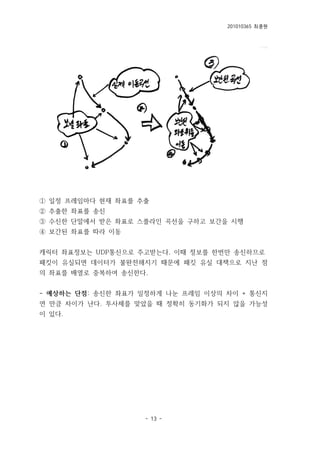 201010365 최홍원
실제 이동곡선
보간된 곡선
②
③
보낼 좌표
보간된
좌표위를
이동
①
④
① 일정 프레임마다 현재 좌표를 추출
② 추출한 좌표를 송신
③ 수신한 단말에서 받은 좌표로 스플라인 곡선을 구하고 보간을 시행
④ 보간된 좌표를 따라 이동
캐릭터 좌표정보는 UDP통신으로 주고받는다. 이때 정보를 한번만 송신하므로
패킷이 유실되면 데이터가 불완전해지기 때문에 패킷 유실 대책으로 지난 점
의 좌표를 배열로 중복하여 송신한다.
- 예상하는 단점: 송신한 좌표가 일정하게 나눈 프레임 이상의 차이 + 통신지
연 만큼 차이가 난다. 투사체를 맞았을 때 정확히 동기화가 되지 않을 가능성
이 있다.
- 13 -